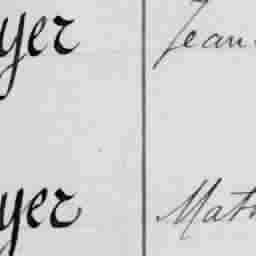 yer Jean
yer Math